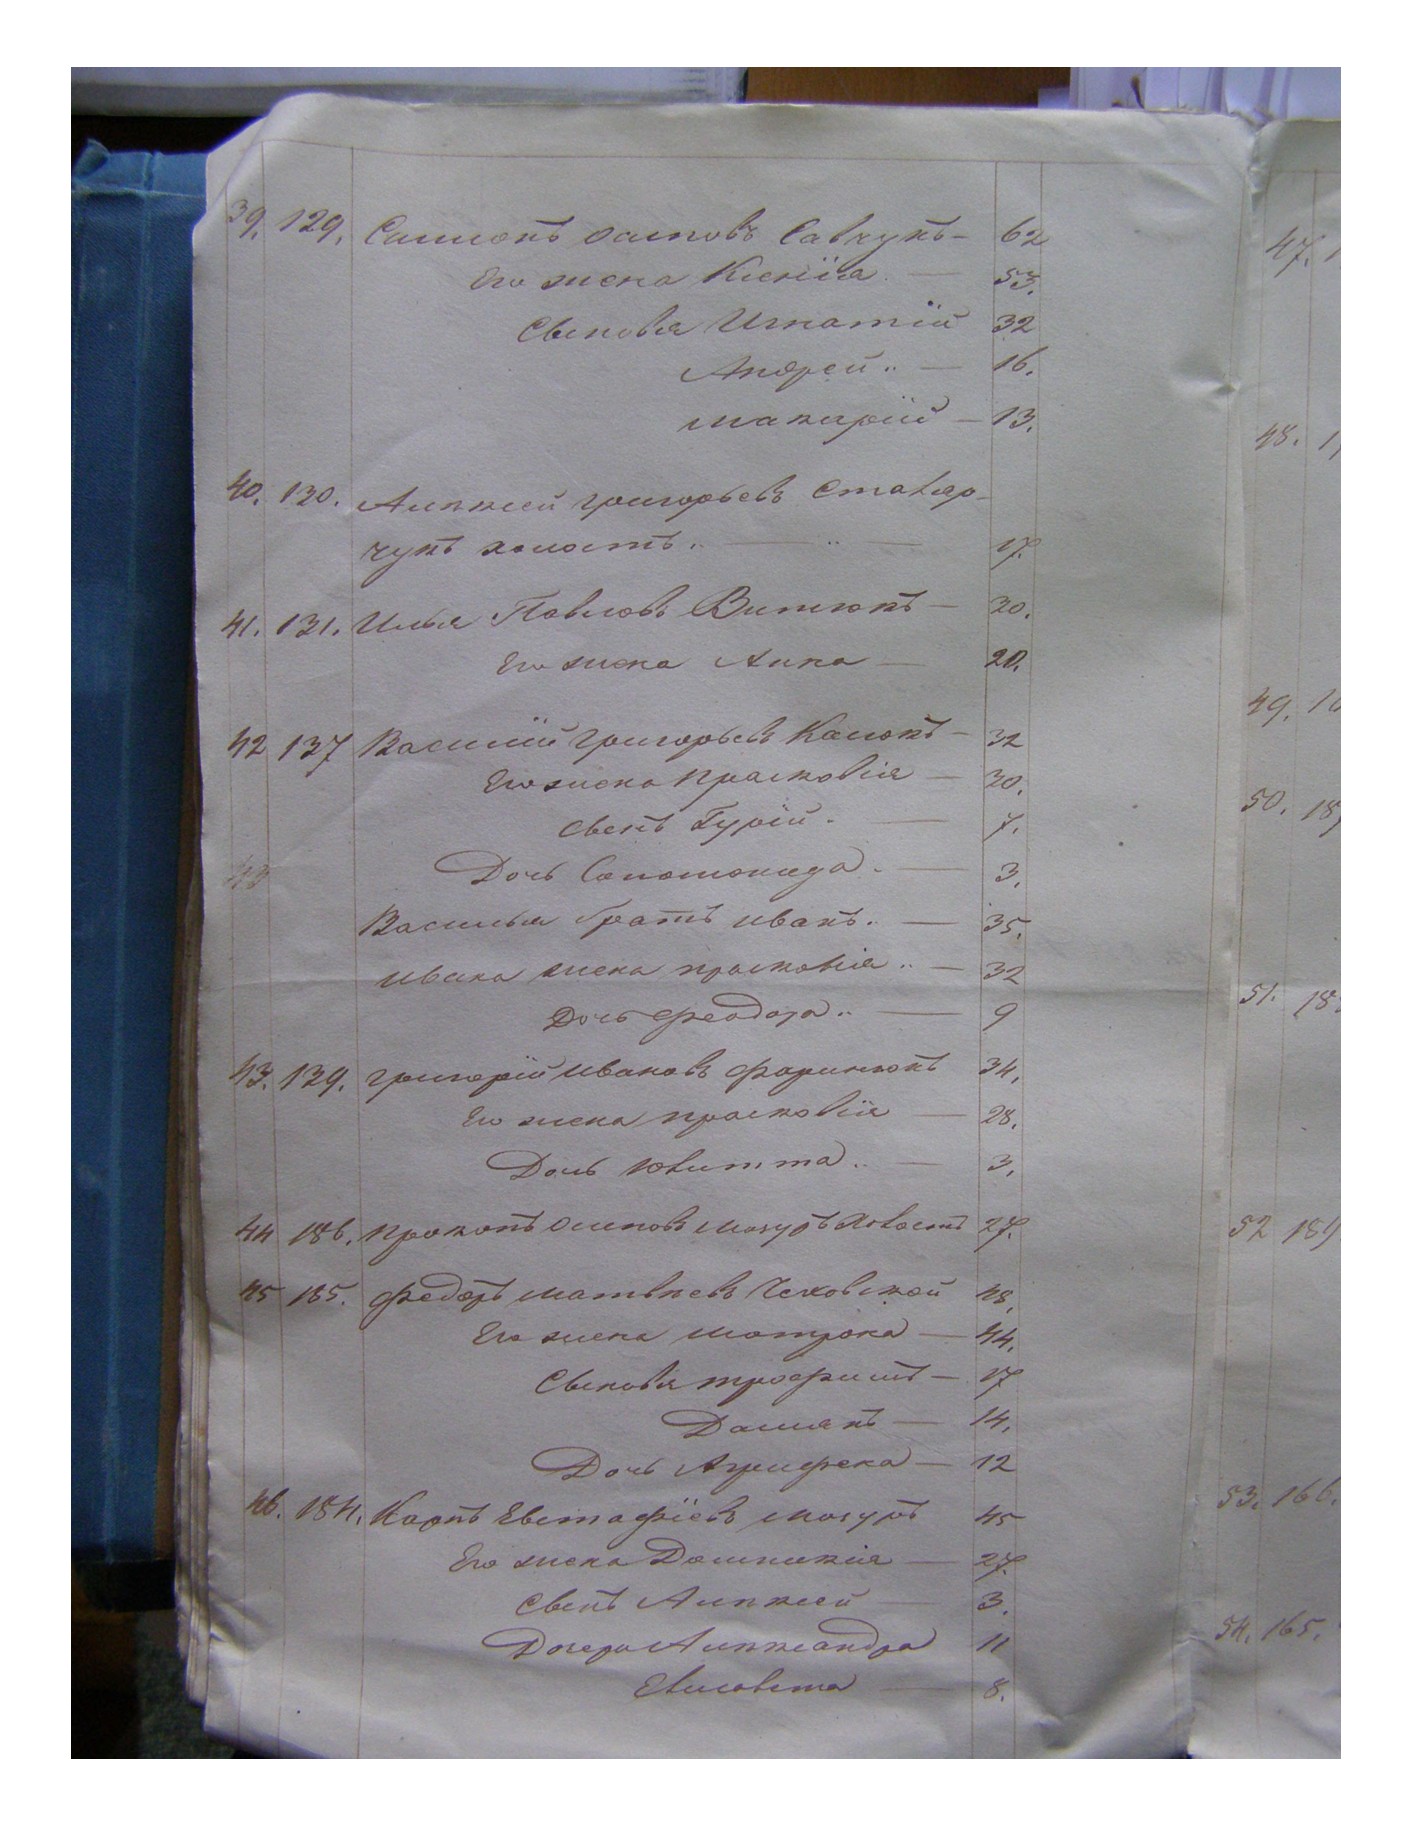 39. 129. Самсонъ Осиповъ Савчукъ - 62
Его жена Ксенїя - 53.
Сыновья Игнатїй 32
Андрей .. - 16.
Макарїй - 13.
40. 130. Алексей Григорьевъ Столяр-
чукъ холостъ .. - .. - 17.
41. 131. Илья Павловъ Витюкъ - 20.
Его жена Анна - 20.
42 137 Василїй Григорьевъ - 32
Его жена Прасковія - 30.
Сынъ Гурїй . - 7.
Дочь Соломонида . - 3.
Василья братъ Иванъ .. - 35.
Ивана жена Прасковія .. - 32
Дочь Феодора .. - 9
43. 139. Григорїй Ивановъ 34.
Его жена Прасковїя - 28.
Дочь Юлитта .. - 3.
44 186. Прокопъ Осиповъ Мазуръ 27.
45 185. Федоръ Матвѣевъ 48.
Его жена Матрона - 44.
Сыновья Трофимъ - 17
Далматъ - 14.
Дочь - 12
46. 184. Карпъ Евстафїевъ Мазуръ 45
Его жена Домникія - 27.
Сынъ Алексей - 3.
Дочери Александра 11
Елисавета - 8.
47. 1
48. 1
49. 1
50. 18
51. 18
52 18
53. 166.
54. 165.